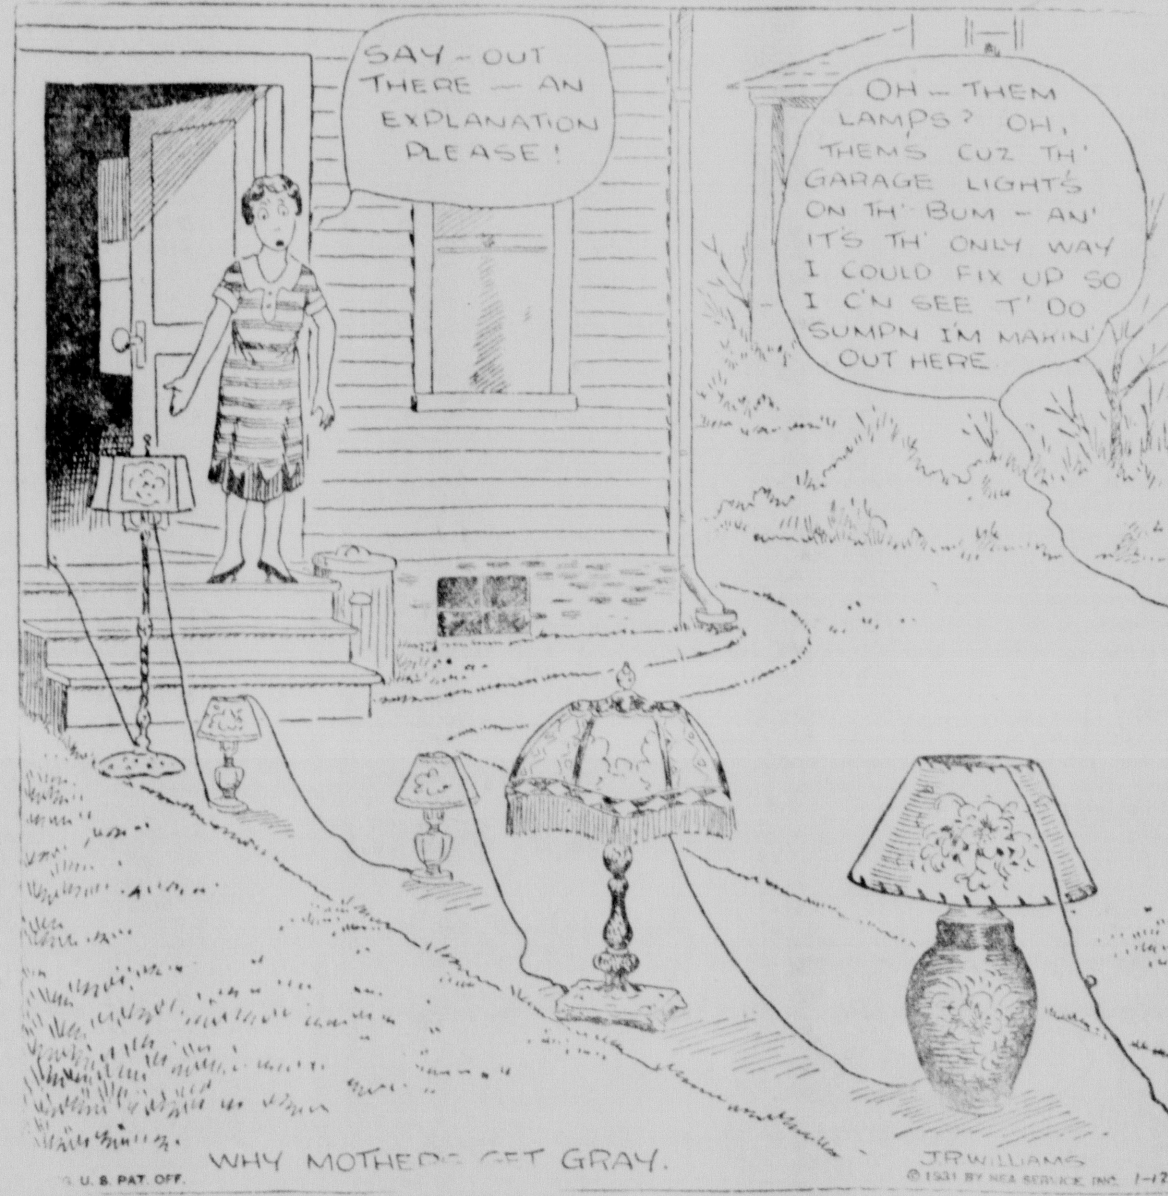 SAY - OUT
THERE - AN
EXPLANATION
PLEASE!
OH - THEM
LAMPS? OH,
THEM'S CUZ TH'
GARAGE LIGHT'S
ON TH' BUM - AN'
IT'S TH' ONLY WAY
I COULD FIX UP SO
I C'N SEE T' DO
SUMPN I'M MAKIN'
OUT HERE.
WHY MOTHERS GET GRAY.
U. S. PAT. OFF.
J.R.WILLIAMS
© 1931 BY NEA SERVICE, INC. 1-12